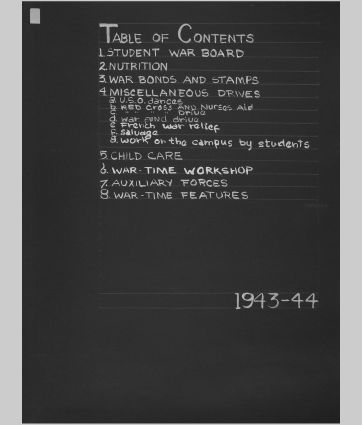 TABLE OF CONTENTS
1. STUDENT WAR BOARD
2. NUTRITION
3. WAR BONDS AND STAMPS
4. MISCELLANEOUS DRIVES
a. U.S.O. dances
b. RED CROSS AND Nurses Aid
c. Drive
d. war fund drive
e. French war relief
f. Salvage
g. work on the campus by students
5. CHILD CARE
6. WAR-TIME WORKSHOP
7. AUXILIARY FORCES
8. WAR-TIME FEATURES
1943-44